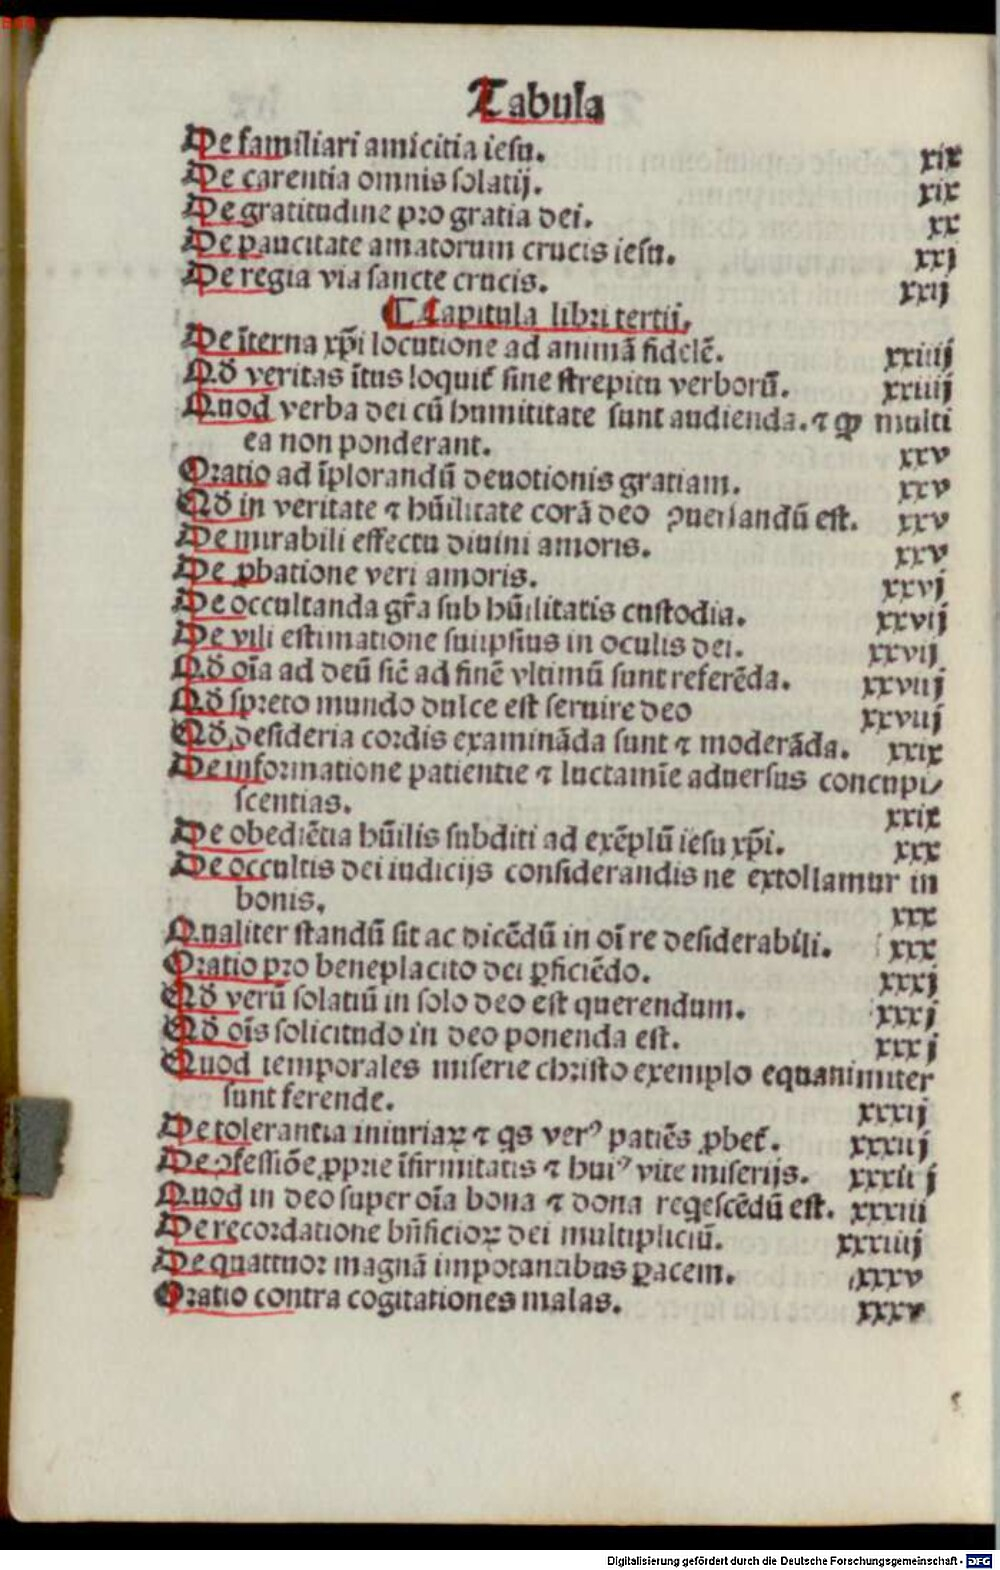 Tabula
De familiari amicitia iesu. xix
De carentia omnis solatij. xix
De gratitudine pro gratia dei. xx
De paucitate amatorum crucis iesu. xxj
De regia via sancte crucis. xxij
Capitula libri tertii.
De īterna xp̄i locutione ad animā fidelē. xxiiij
Qđ veritas ītus loquit̃ sine strepitu verborū. xxiiij
Quod verba dei cū humititate sunt audienda. ⁊ ꝙ multi
ea non ponderant. xxv
Oratio ad īplorandū deuotionis gratiam. xxv
Qđ in veritate ⁊ hūilitate corā deo ꝯuersandū est. xxv
De mirabili effectu diuini amoris. xxv
De ꝓbatione veri amoris. xxvj
De occultanda gr̄a sub hūilitatis custodia. xxvij
De vili estimatione suiipsius in oculis dei. xxvij
Qđ oīa ad deū sic̄ ad finē vltimū sunt referēda. xxviij
Qđ spreto mundo dulce est seruire deo xxviij
Qđ desideria cordis examināda sunt ⁊ moderāda. xxix
De informatione patientie ⁊ luctamīe aduersus concupi⸗
scentias. xxix
De obediētia hūilis subditi ad exēplū iesu xp̄i. xxx
De occultis dei iudicijs considerandis ne extollamur in
bonis. xxx
Qualiter standū sit ac dicēdū in oī re desiderabili. xxx
Oratio pro beneplacito dei ꝑficiēdo. xxxj
Qđ verū solatiū in solo deo est querendum. xxxj
Qđ oīs solicitudo in deo ponenda est. xxxj
Quod temporales miserie christo exemplo equanimiter
sunt ferende. xxxij
De tolerantia iniuriaꝝ ⁊ qs verꝰ patiēs ꝓbet̃. xxxiij
De ꝯfessiōe ꝓprie īfirmitatis ⁊ huiꝰ vite miserijs. xxxiij
Quod in deo super oīa bona ⁊ dona reqescēdū est. xxxiii
De recordatione bn̄ficioꝝ dei multipliciū. xxxiiij
De quattuor magnā importantibus pacem. xxxv
Oratio contra cogitationes malas. xxxv
Digitalisierung gefördert durch die Deutsche Forschungsgemeinschaft - DFG